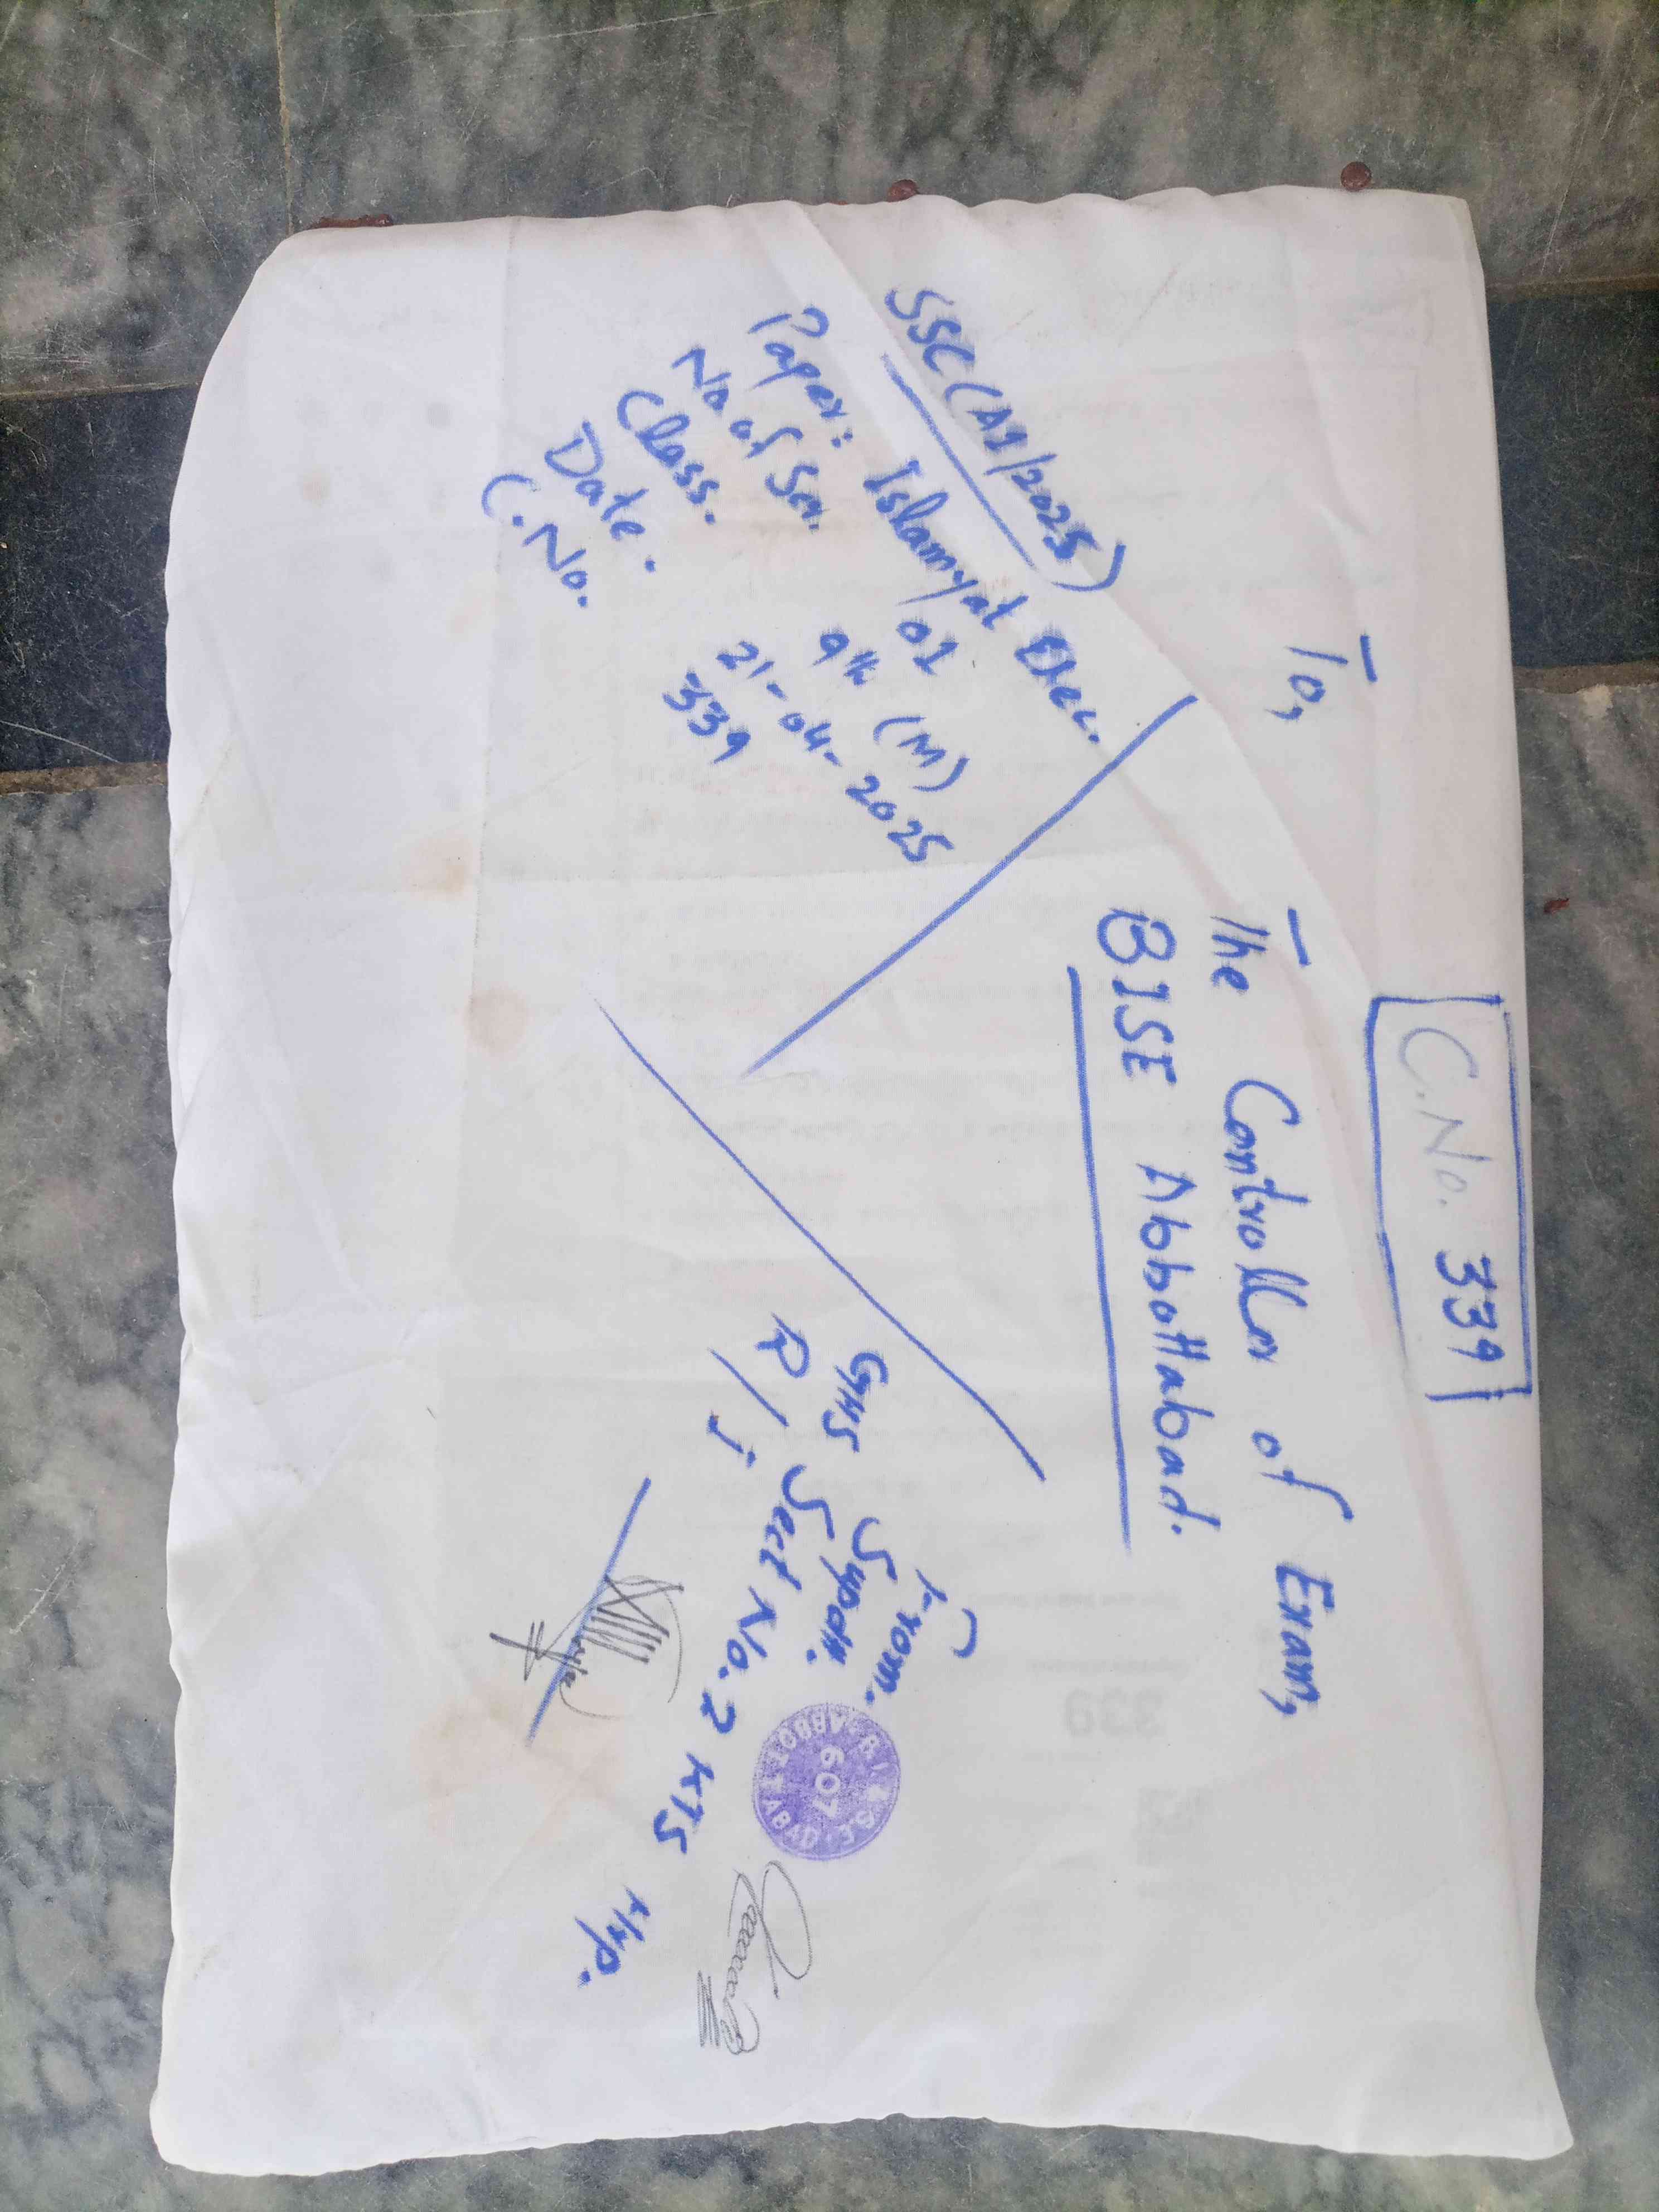 C.No. 339
To,
The Controller of Exam,
BISE Abbottabad.
SSC (A1/2025)
Paper: Islamyat Elec.
No of Scr. 01
Class. 9th (M)
Date. 21-04-2025
C.No. 339
From.
GHS Sypatt.
R/I Sect No. 2 KTS Hrp.
607